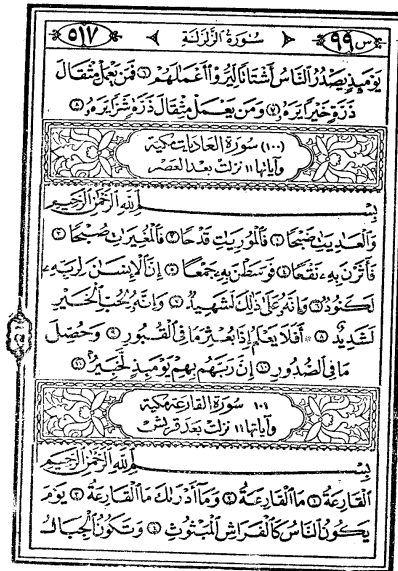 س ٩٩ سُورَةُ الزَّلْزَلَةِ ٥١٧
يَوْمَئِذٍ يَصْدُرُ ٱلنَّاسُ أَشْتَاتًا لِّيُرَوْا۟ أَعْمَٰلَهُمْ ٦ فَمَن يَعْمَلْ مِثْقَالَ
ذَرَّةٍ خَيْرًا يَرَهُۥ ٧ وَمَن يَعْمَلْ مِثْقَالَ ذَرَّةٍ شَرًّا يَرَهُۥ ٨
(١٠٠) سورة العاديات مكية
وآياتها ١١ نزلت بعد العصر
بِسْمِ ٱللَّهِ ٱلرَّحْمَٰنِ ٱلرَّحِيمِ
وَٱلْعَٰدِيَٰتِ ضَبْحًا ١ فَٱلْمُورِيَٰتِ قَدْحًا ٢ فَٱلْمُغِيرَٰتِ صُبْحًا ٣
فَأَثَرْنَ بِهِۦ نَقْعًا ٤ فَوَسَطْنَ بِهِۦ جَمْعًا ٥ إِنَّ ٱلْإِنسَٰنَ لِرَبِّهِۦ
لَكَنُودٌ ٦ وَإِنَّهُۥ عَلَىٰ ذَٰلِكَ لَشَهِيدٌ ٧ وَإِنَّهُۥ لِحُبِّ ٱلْخَيْرِ
لَشَدِيدٌ ٨ * أَفَلَا يَعْلَمُ إِذَا بُعْثِرَ مَا فِى ٱلْقُبُورِ ٩ وَحُصِّلَ
مَا فِى ٱلصُّدُورِ ١٠ إِنَّ رَبَّهُم بِهِمْ يَوْمَئِذٍ لَّخَبِيرٌۢ ١١
١٠١ سورة القارعة مكية
وآياتها ١١ نزلت بعد قريش
بِسْمِ ٱللَّهِ ٱلرَّحْمَٰنِ ٱلرَّحِيمِ
ٱلْقَارِعَةُ ١ مَا ٱلْقَارِعَةُ ٢ وَمَآ أَدْرَىٰكَ مَا ٱلْقَارِعَةُ ٣ يَوْمَ
يَكُونُ ٱلنَّاسُ كَٱلْفَرَاشِ ٱلْمَبْثُوثِ ٤ وَتَكُونُ ٱلْجِبَالُ